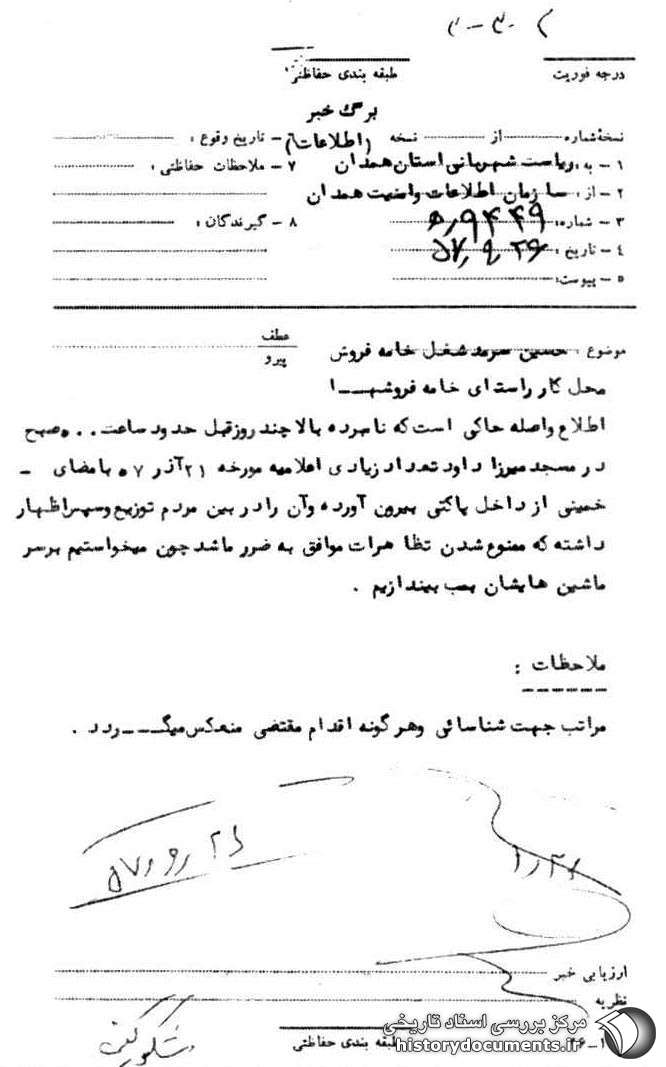 ۲-۳۰
درجه فوریت
طبقه بندی حفاظتی
برگ خبر
(اطلاعات)
نسخهٔ شماره از نسخه
۱ - به: ریاست شهربانی استان همدان
۲ - از: سازمان اطلاعات و امنیت همدان
۳ - شماره: ۵٫۹۴۴۹
۴ - تاریخ: ۵۷٫۹٫۲۶
۵ - پیوست:
۶ - تاریخ وقوع:
۷ - ملاحظات حفاظتی:
۸ - گیرندگان:
موضوع: حسین سرمد شغل خامه فروش
عطف
پیرو
محل کار راسته ای خامه فروشهـــا
اطلاع واصله حاکی است که نامبرده بالا چند روز قبل حدود ساعت ۰۰ ۵ صبح
در مسجد میرزا داود تعداد زیادی اعلامیه مورخه ۲۱ آذر ۵۷ بامضای -
خمینی از داخل پاکتی بیرون آورده وآن را در بین مردم توزیع وسپس اظهار
داشته که ممنوع شدن تظا هرات موافق به ضرر ما شد چون میخواستیم برسر
ماشین هایشان بمب بیندازیم .
ملاحظات :
مراتب جهت شناسائی وهرگونه اقدام مقتضی منعکس میگـــردد .
۲۶ ر ۹ ر ۵۷
ارزیابی خبر
نظریه
طبقه بندی حفاظتی
مرکز بررسی اسناد تاریخی
historydocuments.ir